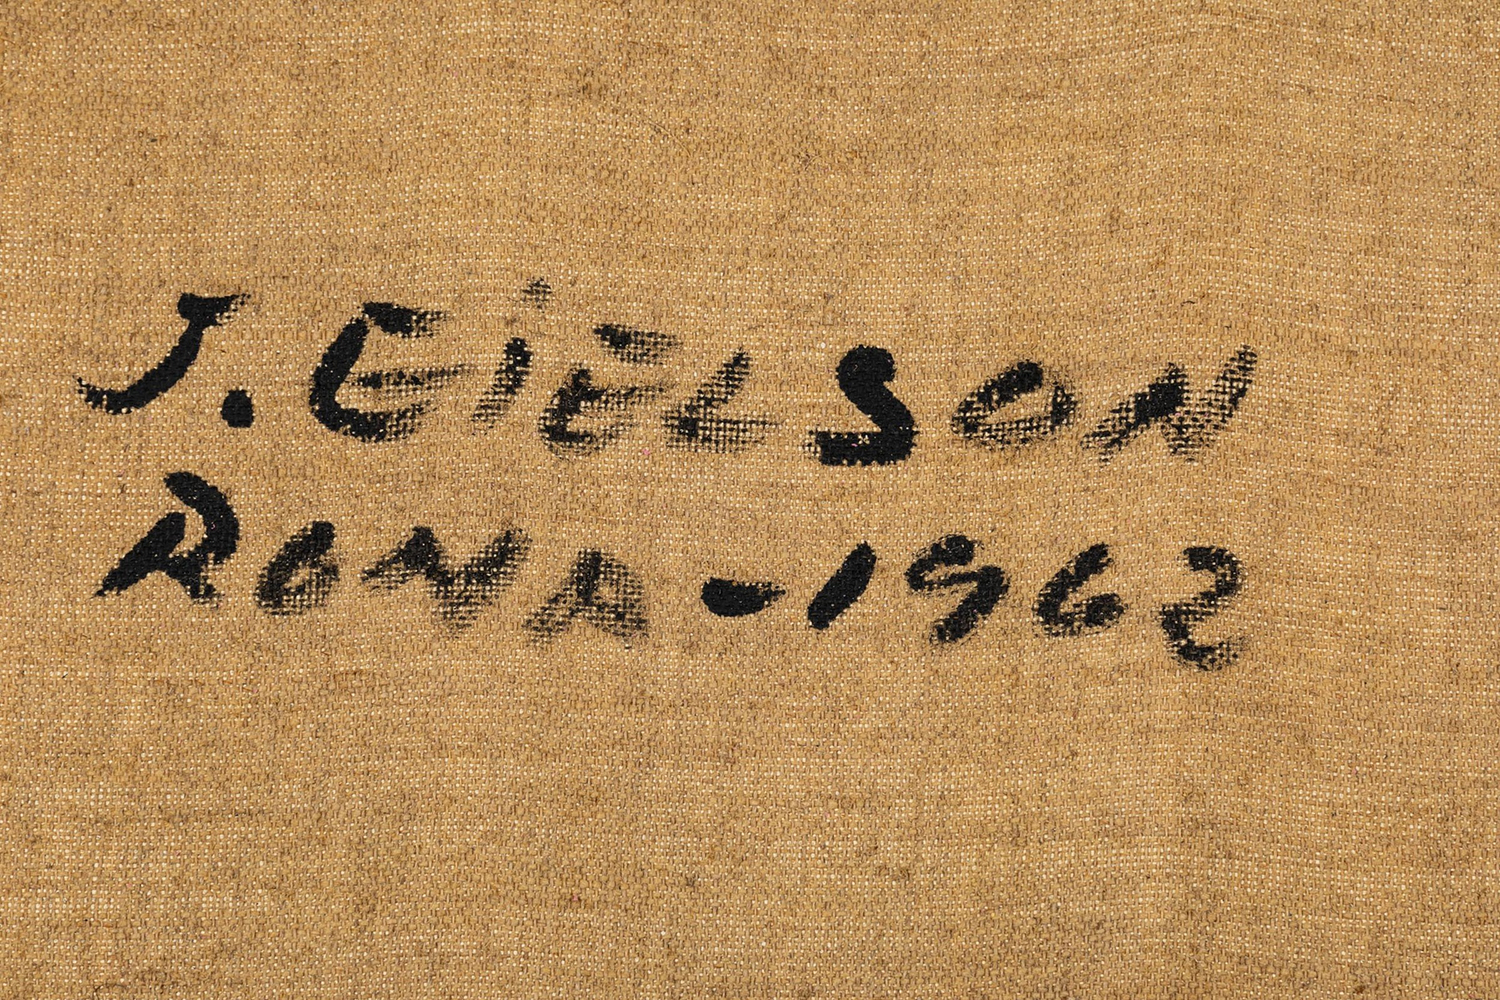 J. EiELSON
ROMA - 1962